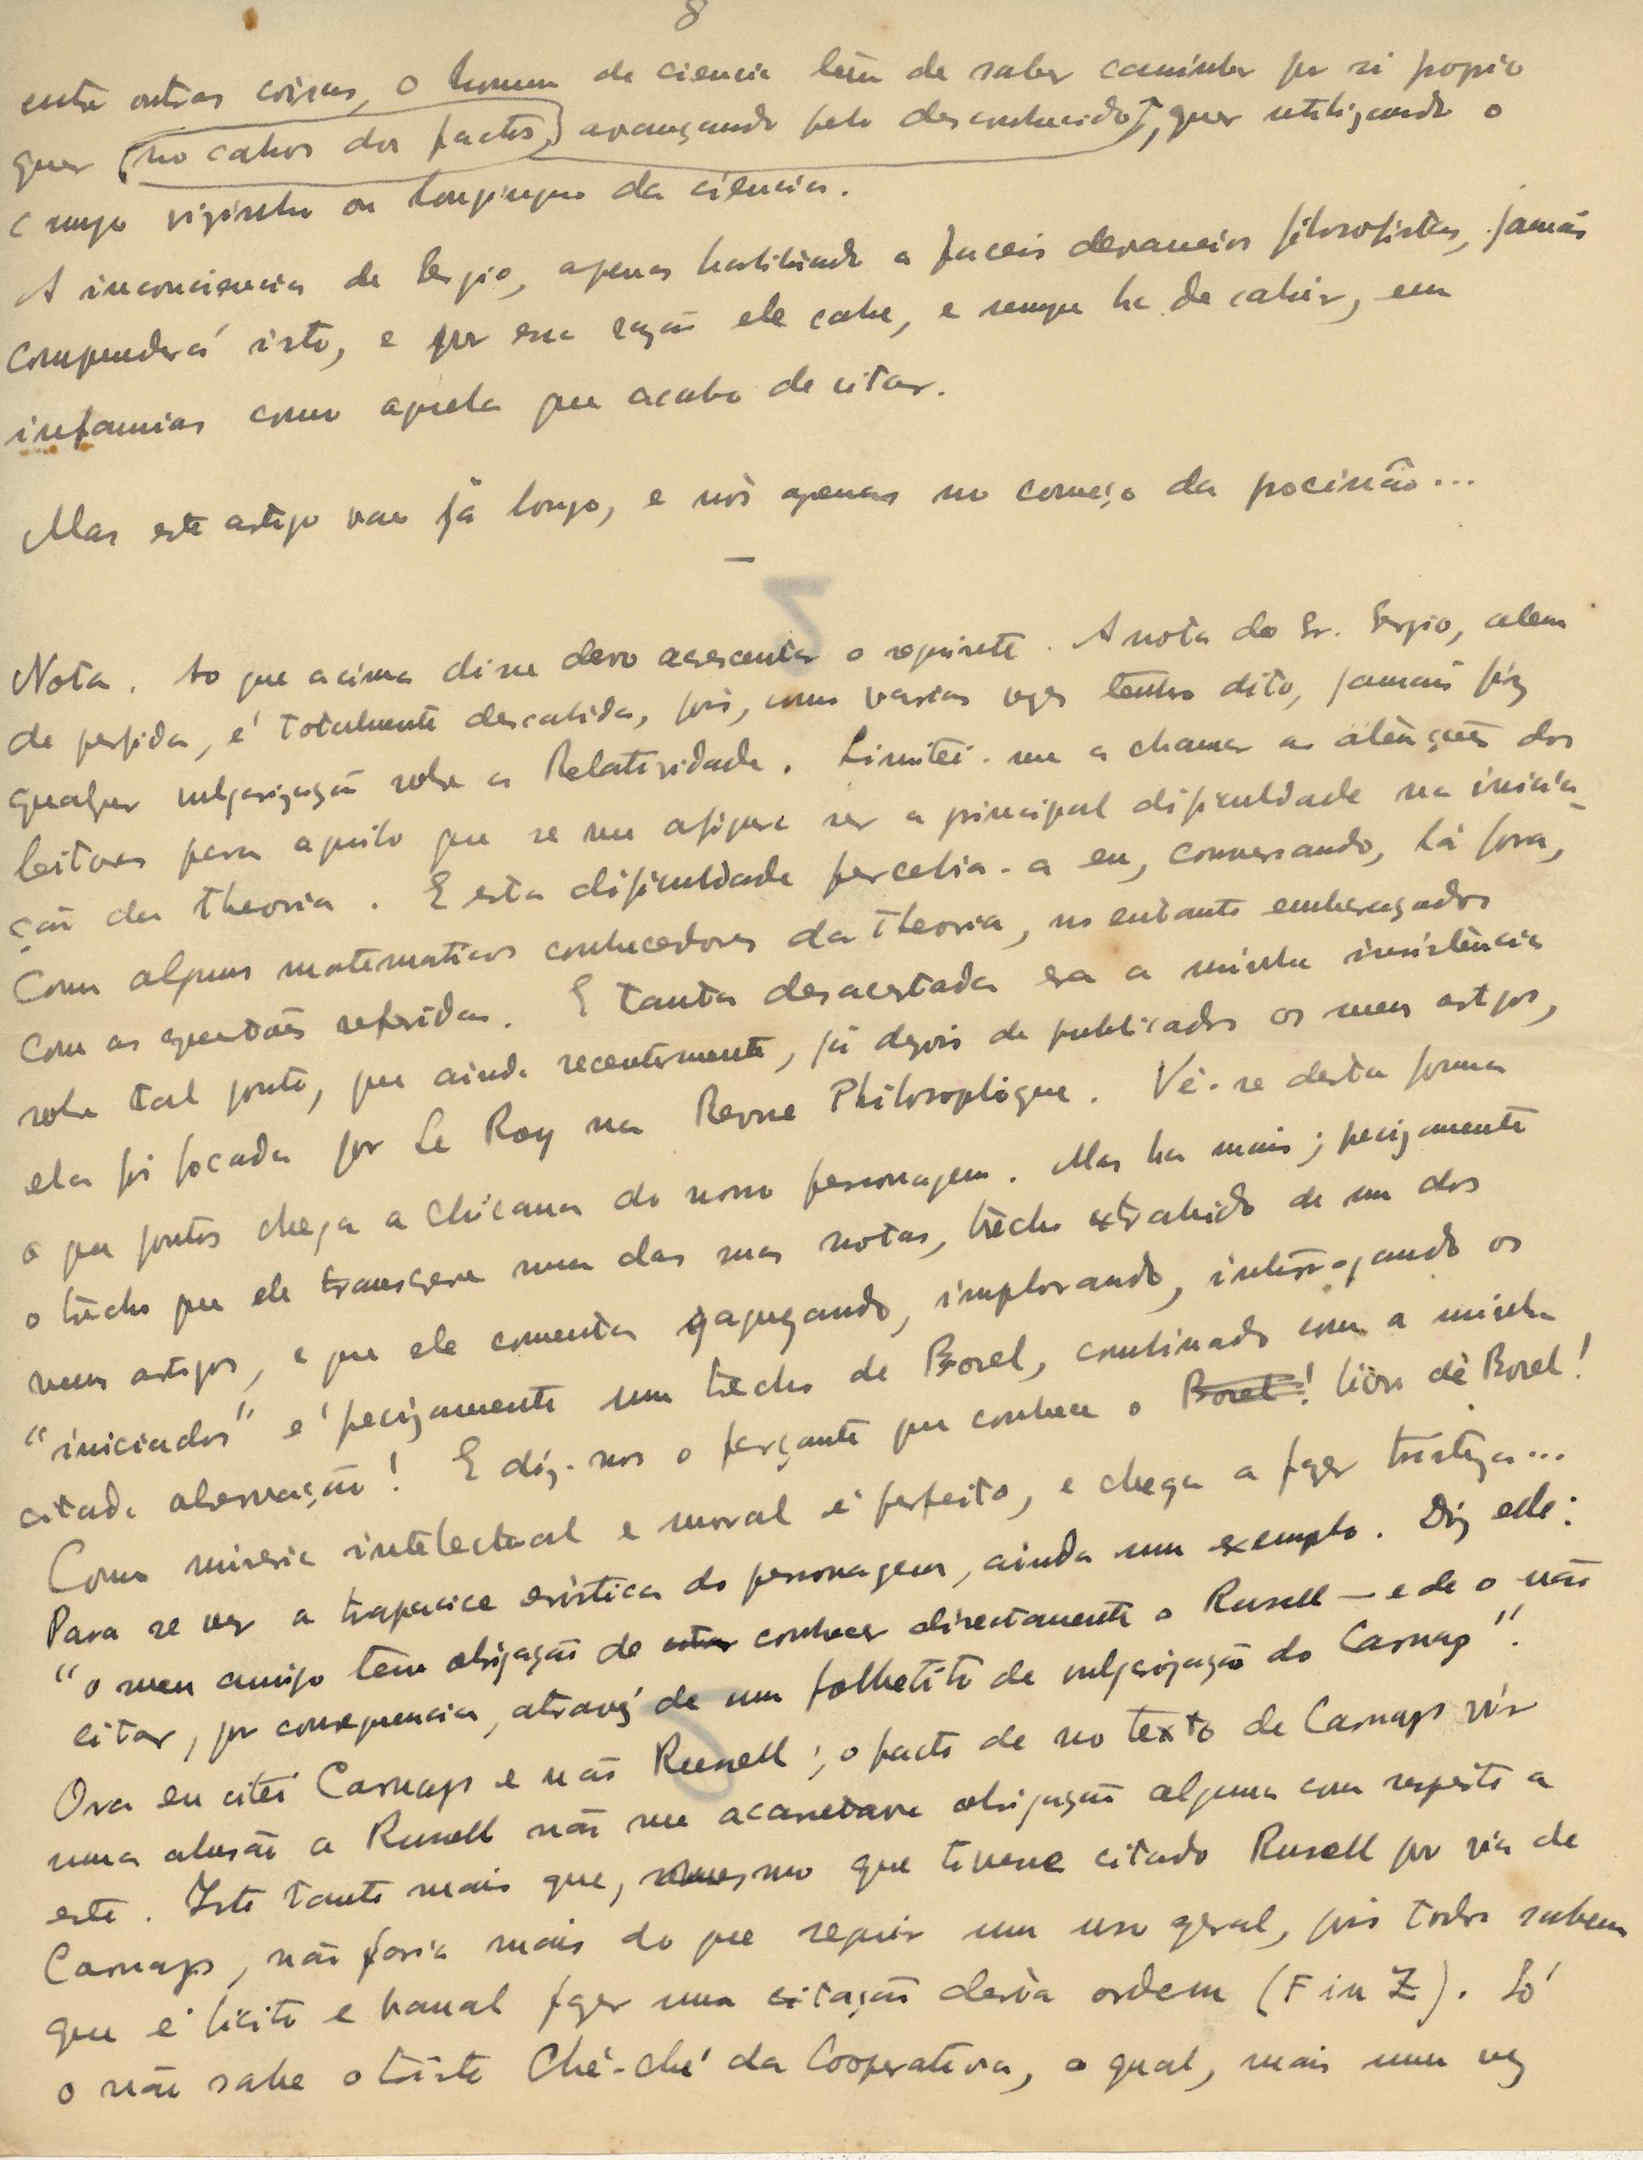 8
entre outras coisas, o homem de ciencia têm de saber caminhar por si proprio
quer (no cahos dos factos,) avançando pelo desconhecido, quer utilizando o
campo vizinho ou longinquo da ciencia.
A inconsciencia de Sergio, apenas habilitado a faceis devaneios filosofistas, jamais
compreenderá isto, e por essa razão ele cahe, e sempre ha de cahir, em
infamias como aquela que acabo de citar.
Mas este artigo vae já longo, e nós apenas no começo da procissão...
—
Nota. Ao que acima disse devo acrescentar o seguinte. A nota do Sr. Sergio, alem
de perfida, é totalmente descabida, pois, como varias vezes tenho dito, jamais fiz
qualquer vulgarização sobre a Relatividade. Limitei-me a chamar as atenções dos
leitores para aquilo que se me afigura ser a principal dificuldade na inicia-
ção da theoria. E esta dificuldade percebia-a eu, conversando, lá fora,
com alguns matematicos conhecedores da theoria, no entanto embaraçados
com as questões referidas. E tanta desacertada era a minha insistência
sobre tal ponto, que ainda recentemente, já depois de publicados os meus artigos,
ela foi focada por Le Roy na Revue Philosophique. Vê-se desta forma
a que pontos chega a chicana do nosso personagem. Mas ha mais; precizamente
o trêcho que ele transcreve numa das suas notas, trêcho extrahido de um dos
meus artigos, e que ele comenta gaguejando, implorando, interrogando os
"iniciados" é precizamente um trecho de Borel, combinado com a minha
citada observação! E diz-nos o farçante que conhece o Borel! livro de Borel!
Como miseria intelectual e moral é perfeito, e chega a fazer tristeza...
Para se ver a trapacice erística do personagem, ainda um exemplo. Diz ele:
"o meu amigo tem obrigação de conhecer directamente o Russell — e de o não
citar, por consequencia, atravez de um folhetito de vulgarização do Carnap".
Ora eu citei Carnap e não Russell; o facto de no texto de Carnap vir
uma alusão a Russell não me acarretava obrigação alguma com respeito a
este. Isto tanto mais que, mesmo que tivesse citado Russell por via de
Carnap, não faria mais do que seguir um uso geral, pois todos sabem
que é licito e banal fazer uma citação desta ordem (F in Z). Só
o não sabe o triste Ché-ché da Cooperativa, o qual, mais uma vez